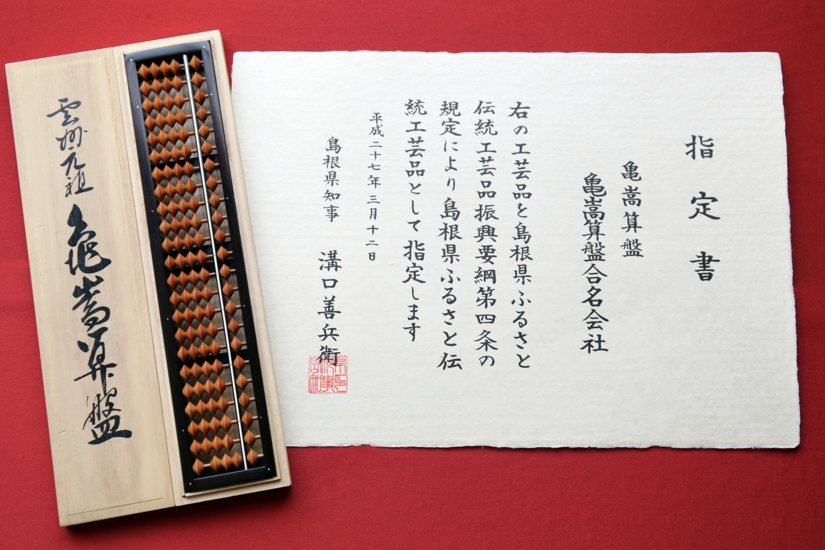 指定書
亀嵩算盤
亀嵩算盤合名会社
右の工芸品を島根県ふるさと
伝統工芸品振興要綱第四条の
規定により島根県ふるさと伝
統工芸品として指定します
平成二十七年三月十二日
島根県知事 溝口善兵衛
雲州元祖
亀嵩算盤